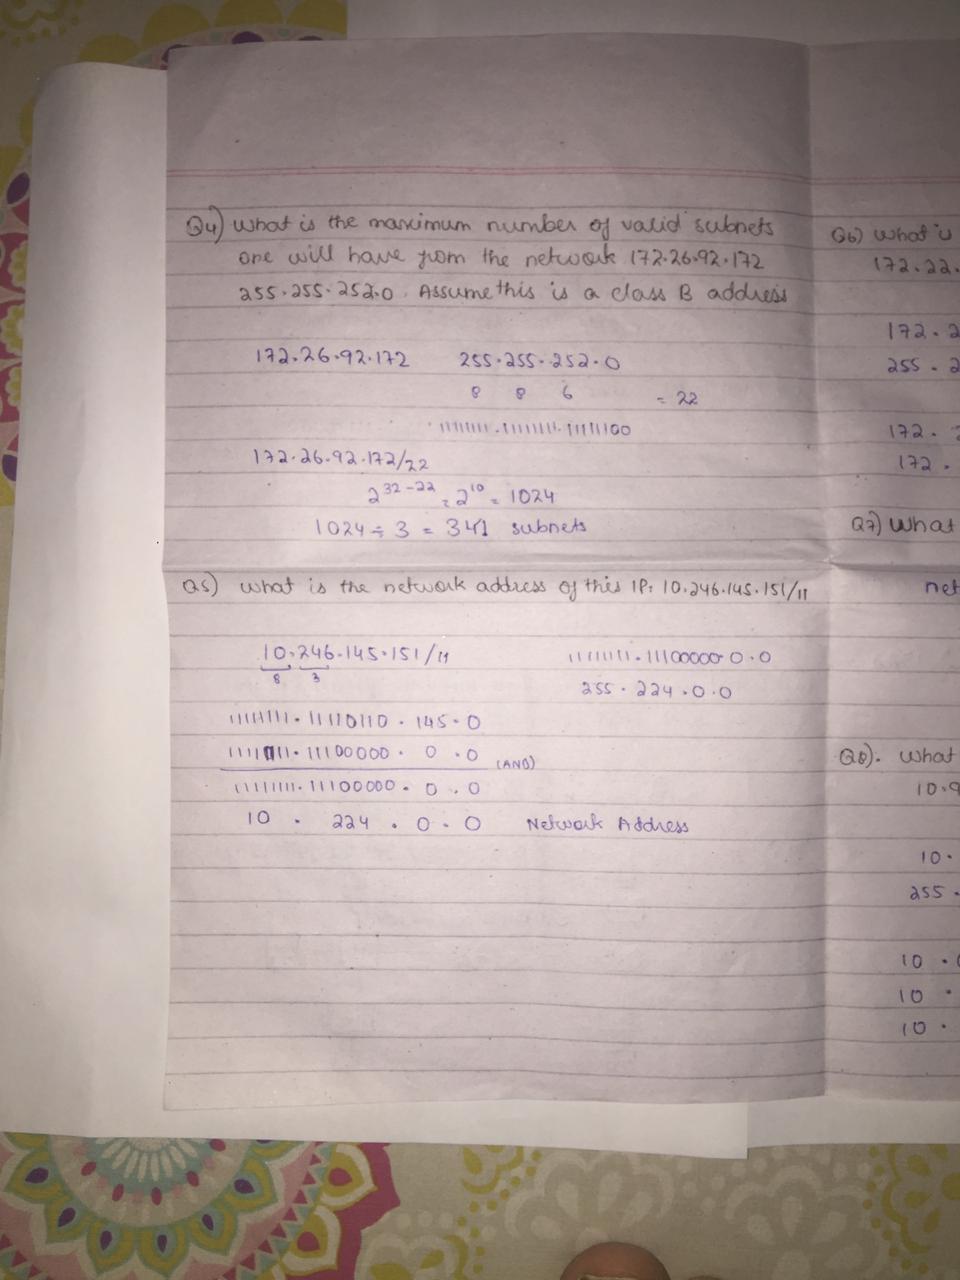 Q4) What is the maximum number of valid subnets
one will have from the network 172.26.92.172
255.255.252.0. Assume this is a class B address
172.26.92.172 255.255.252.0
8 8 6 = 22
11111111.11111111.11111100
172.26.92.172/22
2^32-22 = 2^10 = 1024
1024 ÷ 3 = 341 subnets
Q5) what is the network address of this IP: 10.246.145.151/11
10.246.145.151/11 11111111.11100000.0.0
8 3 255.224.0.0
11111111.11110110.145.0
11111111.11100000.0.0 (AND)
11111111.11100000.0.0
10.224.0.0 Network Address
Q6) What
172.22.
172.
255.
172.
172.
Q7) What
net
Q8). What
10.
10.
255.
10.
10.
10.